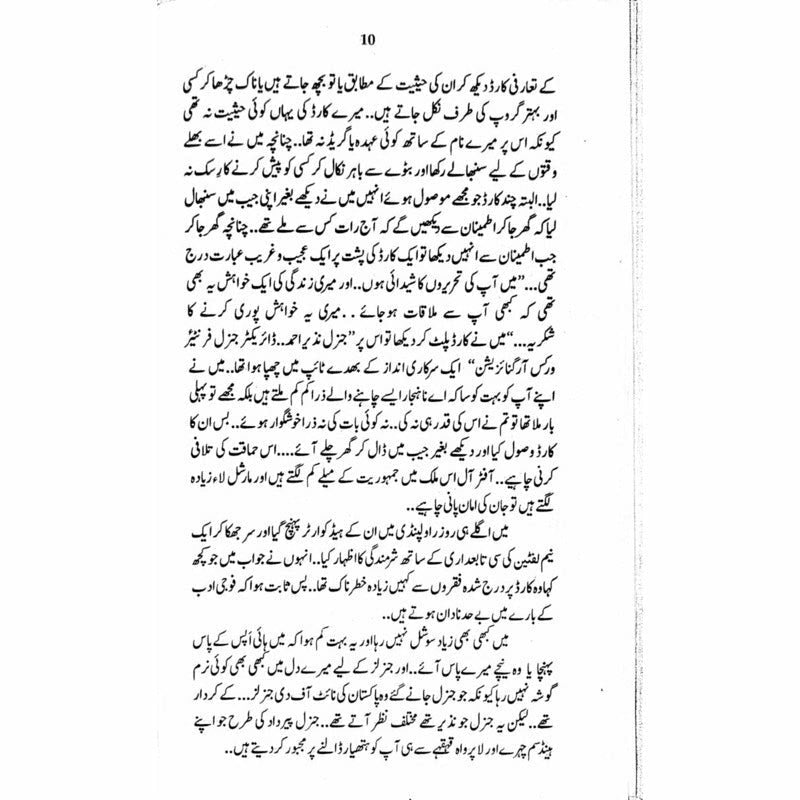 10
کے تعارفی کارڈ دیکھ کر ان کی حیثیت کے مطابق یا تو بچھ جاتے ہیں یا ناک چڑھا کر کسی
اور بہتر گروپ کی طرف نکل جاتے ہیں.. میرے کارڈ کی یہاں کوئی حیثیت نہ تھی
کیونکہ اس پر میرے نام کے ساتھ کوئی عہدہ یا گریڈ نہ تھا.. چنانچہ میں نے اسے بھلے
وقتوں کے لیے سنبھالے رکھا اور بٹوے سے باہر نکال کر کسی کو پیش کرنے کا رِسک نہ
لیا.. البتہ چند کارڈ جو مجھے موصول ہوئے انہیں میں نے دیکھے بغیر اپنی جیب میں سنبھال
لیا کہ گھر جا کر اطمینان سے دیکھیں گے کہ آج رات کس سے ملے تھے.. چنانچہ گھر جا کر
جب اطمینان سے انہیں دیکھا تو ایک کارڈ کی پشت پر ایک عجیب و غریب عبارت درج
تھی... ”میں آپ کی تحریروں کا شیدائی ہوں.. اور میری زندگی کی ایک خواہش یہ بھی
تھی کہ کبھی آپ سے ملاقات ہو جائے.. میری یہ خواہش پوری کرنے کا
شکریہ...“ میں نے کارڈ پلٹ کر دیکھا تو اس پر ”جنرل نذیر احمد.. ڈائریکٹر جنرل فرنٹیئر
ورکس آرگنائزیشن“ ایک سرکاری انداز کے بھدے ٹائپ میں چھپا ہوا تھا.. میں نے
اپنے آپ کو بہت کوسا کہ اے ناہنجار ایسے چاہنے والے ذرا کم کم ملتے ہیں بلکہ مجھے تو پہلی
بار ملا تھا تو تم نے اس کی قدر ہی نہ کی.. نہ کوئی بات کی نہ ذرا خوشگوار ہوئے.. بس ان کا
کارڈ وصول کیا اور دیکھے بغیر جیب میں ڈال کر گھر چلے آئے.... اس حماقت کی تلافی
کرنی چاہیے.. آفٹر آل اس ملک میں جمہوریت کے میلے کم لگتے ہیں اور مارشل لاء زیادہ
لگتے ہیں تو جان کی امان پانی چاہیے..
میں اگلے ہی روز راولپنڈی میں ان کے ہیڈ کوارٹر پہنچ گیا اور سر جھکا کر ایک
نیم لفٹین کی سی تابعداری کے ساتھ شرمندگی کا اظہار کیا.. انہوں نے جواب میں جو کچھ
کہا وہ کارڈ پر درج شدہ فقروں سے کہیں زیادہ خطرناک تھا.. پس ثابت ہوا کہ فوجی ادب
کے بارے میں بے حد نادان ہوتے ہیں..
میں کبھی بھی زیادہ سوشل نہیں رہا اور یہ بہت کم ہوا کہ میں ہائی اَپس کے پاس
پہنچا یا وہ نیچے میرے پاس آئے.. اور جنرلز کے لیے میرے دل میں کبھی بھی کوئی نرم
گوشہ نہیں رہا کیونکہ جو جنرل جانے گئے وہ پاکستان کی نائٹ آف دی جنرلز... کے کردار
تھے.. لیکن یہ جنرل جو نذیر تھے مختلف نظر آتے تھے.. جنرل پیرداد کی طرح جو اپنے
ہینڈسم چہرے اور لاپرواہ قہقہے سے ہی آپ کو ہتھیار ڈالنے پر مجبور کر دیتے ہیں..